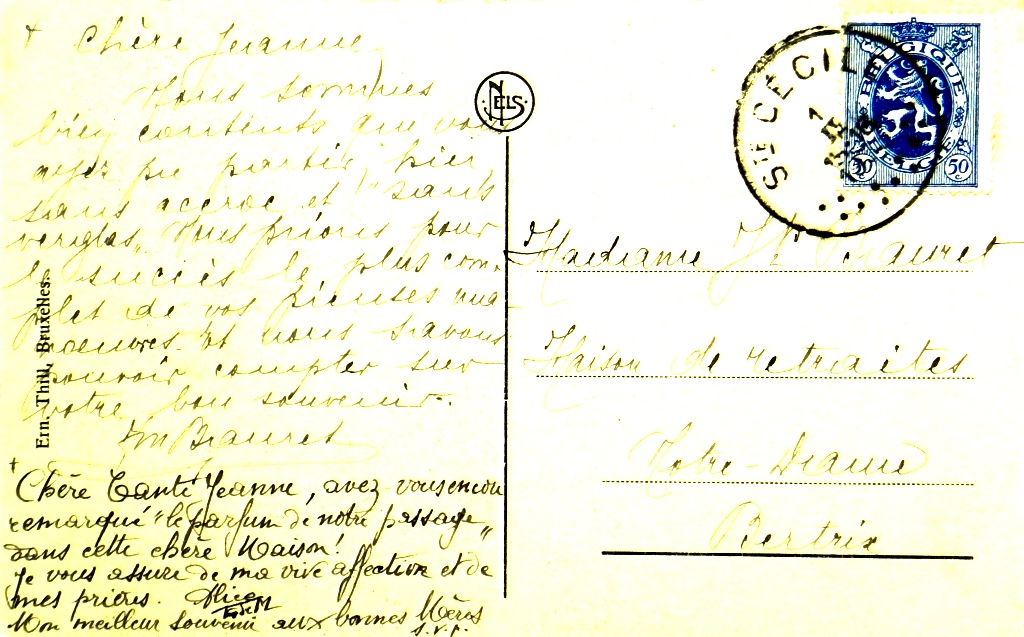 † Chère Jeanne
Nous sommes
bien contents que vous
ayez pu partir hier
sans accroc et "sans
verglas". Nous prions pour
le succès le plus com-
plet de vos pieuses ma-
noeuvres. Et nous savons
pouvoir compter sur
votre bon souvenir.
† Chère Tante Jeanne, avez-vous encore
remarqué "le parfum de notre passage"
dans cette chère Maison!
Je vous assure de ma vive affection et de
mes prières. Alice
Mon meilleur souvenir aux bonnes Mères
s.v.p.
Ern. Thill, Bruxelles.
NELS
STE CÉCIL
1
BELGIQUE
BELGIË
50 c 50 c
Madame
Maison de retraites
Notre-Dame
Bertrix